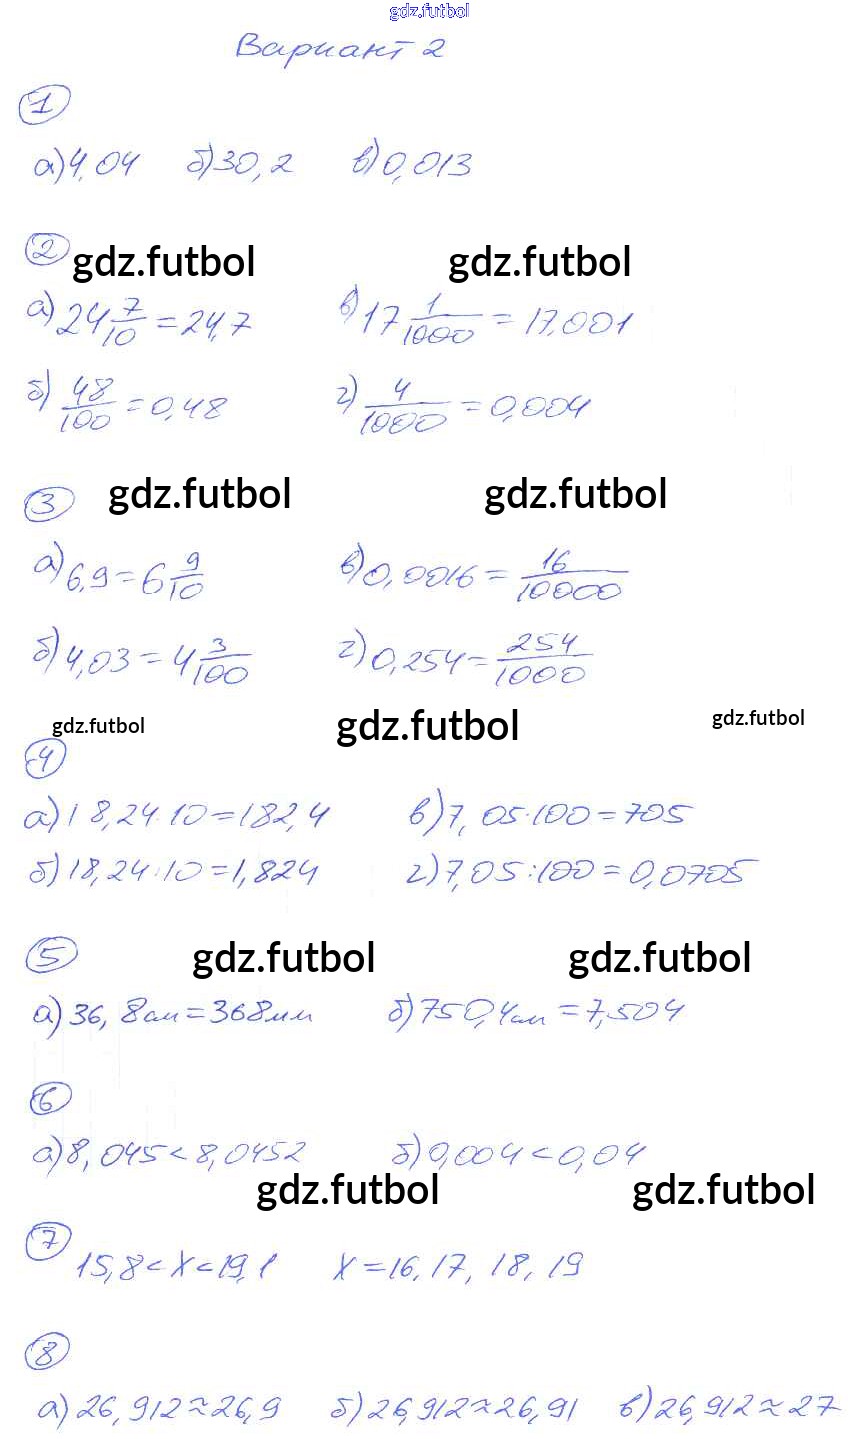 gdz.futbol
Вариант 2
1
а) 4,04 б) 30,2 в) 0,013
2 gdz.futbol gdz.futbol
а) 24 7/10 = 24,7 в) 17 1/1000 = 17,001
б) 48/100 = 0,48 г) 4/1000 = 0,004
3 gdz.futbol gdz.futbol
а) 6,9 = 6 9/10 в) 0,0016 = 16/10000
б) 4,03 = 4 3/100 г) 0,254 = 254/1000
gdz.futbol gdz.futbol gdz.futbol
4
а) 18,24·10 = 182,4 в) 7,05·100 = 705
б) 18,24:10 = 1,824 г) 7,05:100 = 0,0705
5 gdz.futbol gdz.futbol
а) 36,8см = 368мм б) 750,4см = 7,504
6
а) 8,045 < 8,0452 б) 0,004 < 0,04
gdz.futbol gdz.futbol
7
15,8 < x < 19,1 x = 16, 17, 18, 19
8
а) 26,912 ≈ 26,9 б) 26,912 ≈ 26,91 в) 26,912 ≈ 27